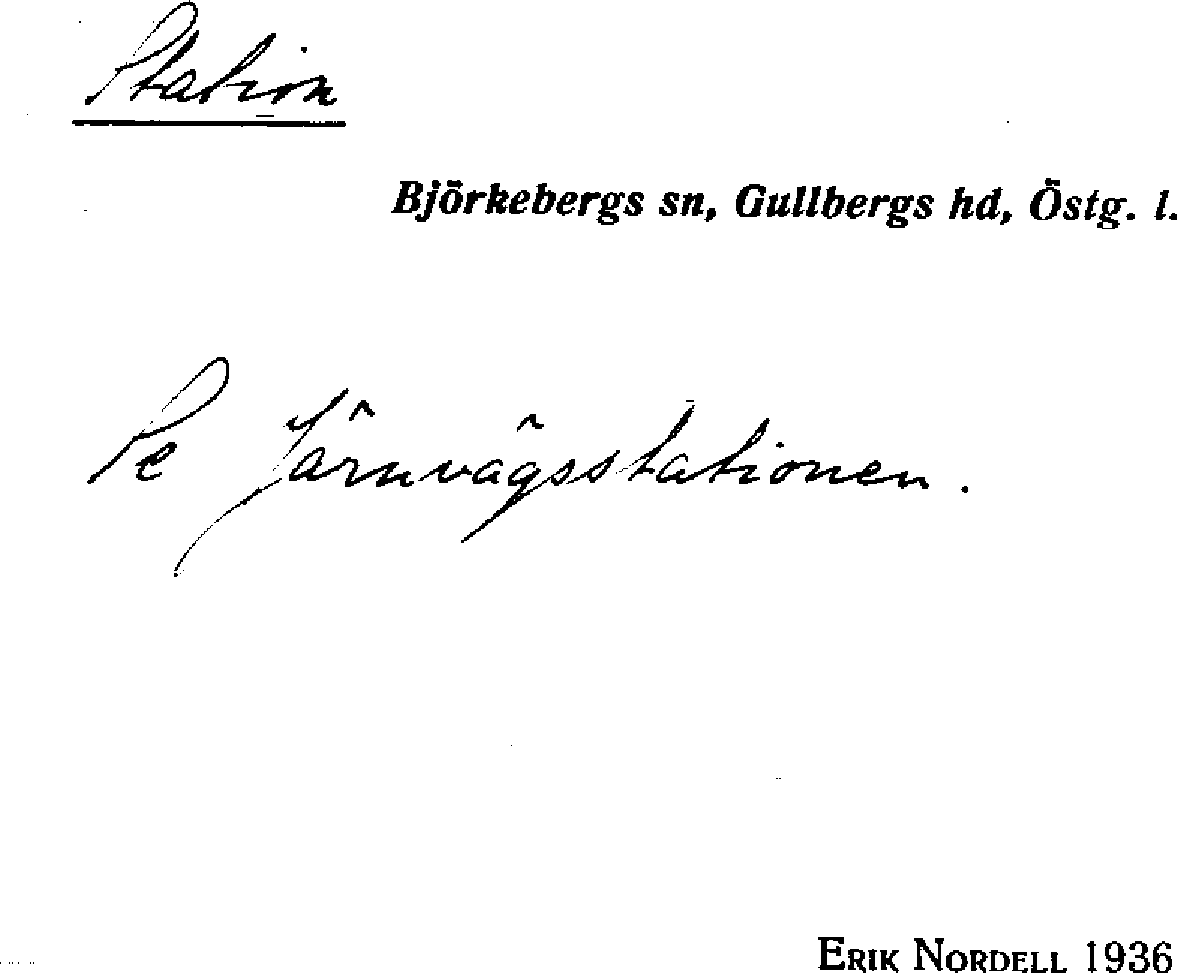 Station
Björkebergs sn, Gullbergs hd, Östg. l.
Se Järnvägsstationen.
ERIK NORDELL 1936